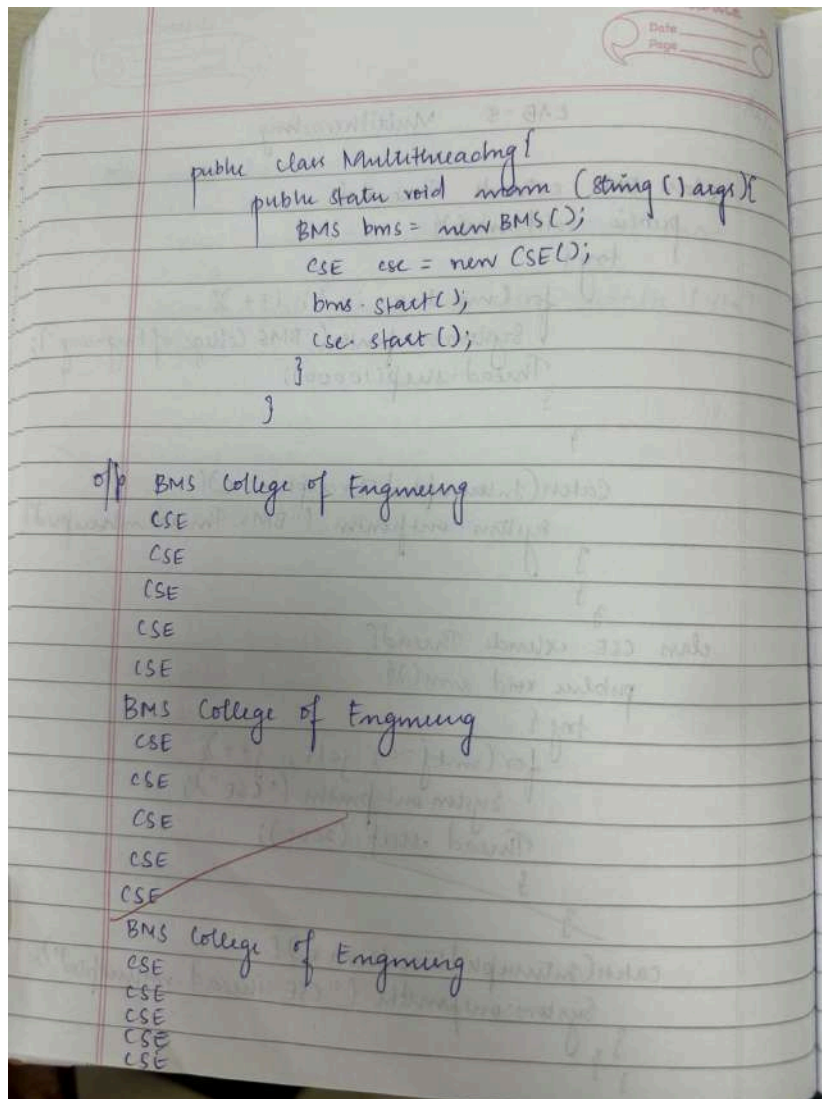 Date
Page
public class Multithreading{
public static void main (String () args){
BMS bms = new BMS();
CSE cse = new CSE();
bms.start();
cse.start();
}
}
o/p BMS College of Engineering
CSE
CSE
CSE
CSE
CSE
BMS College of Engineering
CSE
CSE
CSE
CSE
CSE
BMS College of Engineering
CSE
CSE
CSE
CSE
CSE